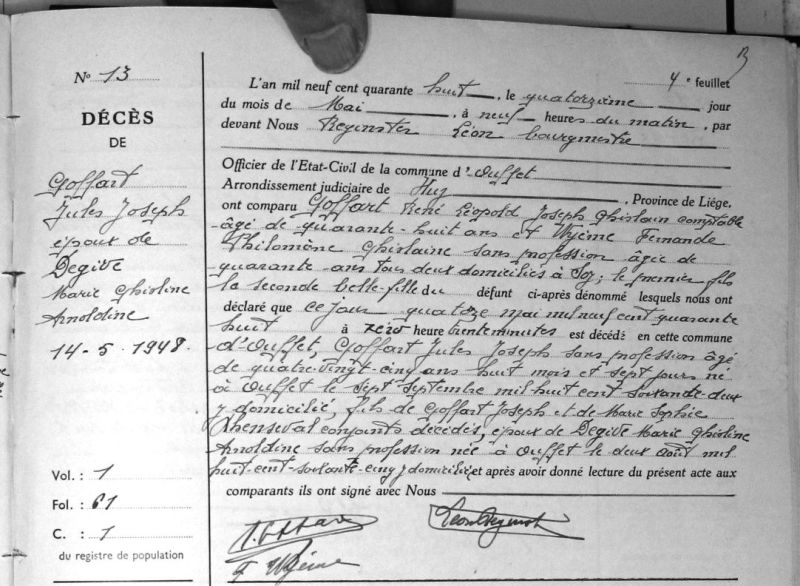 13
Nº 13
DÉCÈS
DE
Goffart
Jules Joseph
époux de
Degive
Marie Ghisline
Arnoldine
14-5-1948.
Vol. : 1
Fol. : 61
C. : 1
du registre de population
4e feuillet
L'an mil neuf cent quarante huit, le quatorzième jour
du mois de Mai, à neuf heures du matin, par
devant Nous Reginster Léon bourgmestre
Officier de l'Etat-Civil de la commune d'Ouffet
Arrondissement judiciaire de Huy, Province de Liége,
ont comparu Goffart René Léopold Joseph Ghislain comptable
âgé de quarante-huit ans et Wyème Fernande
Philomène Ghislaine sans profession âgée de
quarante ans tous deux domiciliés à Soy; le premier fils
la seconde belle-fille du défunt ci-après dénommé lesquels nous ont
déclaré que ce jour quatorze mai mil neuf cent quarante
huit à zéro heure trente minutes est décédé en cette commune
d'Ouffet, Goffart Jules Joseph sans profession âgé
de quatre-vingt-cinq ans huit mois et sept jours né
à Ouffet le sept septembre mil huit cent soixante-deux
y domicilié, fils de Goffart Joseph et de Marie Sophie
Thenseval conjoints décédés, époux de Degive Marie Ghisline
Arnoldine sans profession née à Ouffet le deux août mil
huit-cent-soixante-cinq y domiciliée et après avoir donné lecture du présent acte aux
comparants ils ont signé avec Nous
R. Goffart
Léon Reginster
F Wyème